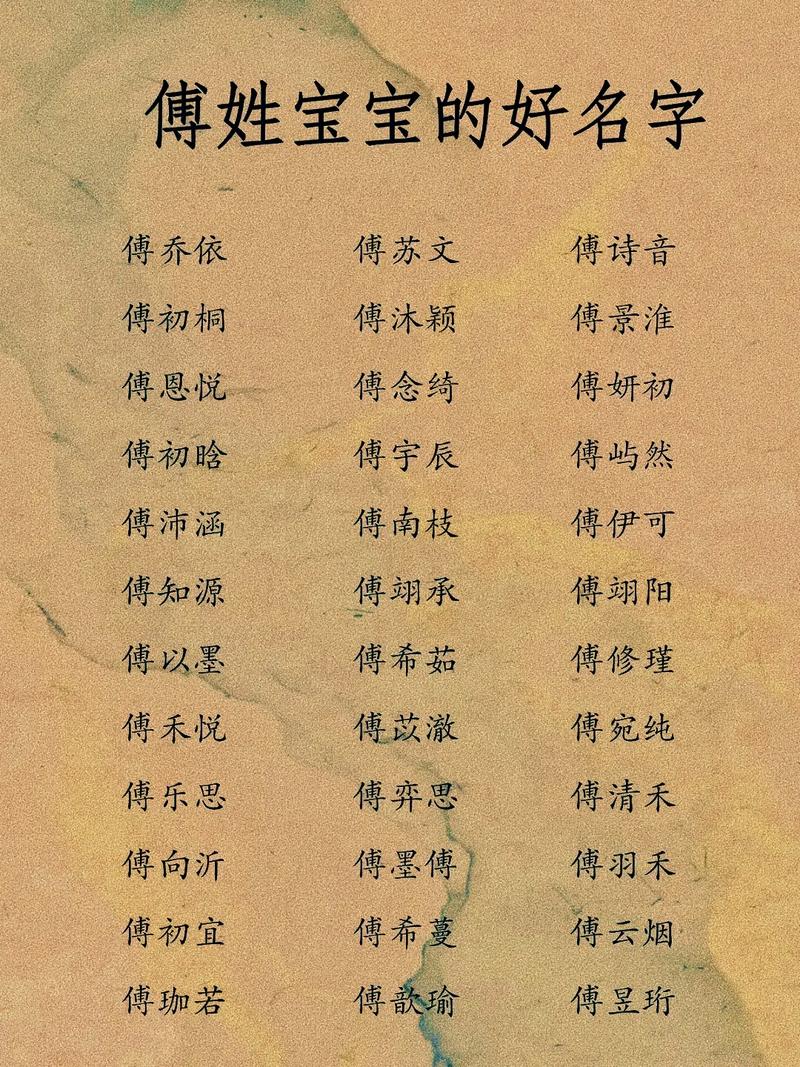 傅姓宝宝的好名字
傅乔依 傅苏文 傅诗音
傅初桐 傅沐颖 傅景淮
傅恩悦 傅念绮 傅妍初
傅初晗 傅宇辰 傅屿然
傅沛涵 傅南枝 傅伊可
傅知源 傅翊承 傅翊阳
傅以墨 傅希茹 傅修瑾
傅禾悦 傅苡澈 傅宛纯
傅乐思 傅弈思 傅清禾
傅向沂 傅墨傅 傅羽禾
傅初宜 傅希蔓 傅云烟
傅珈若 傅歆瑜 傅昱珩